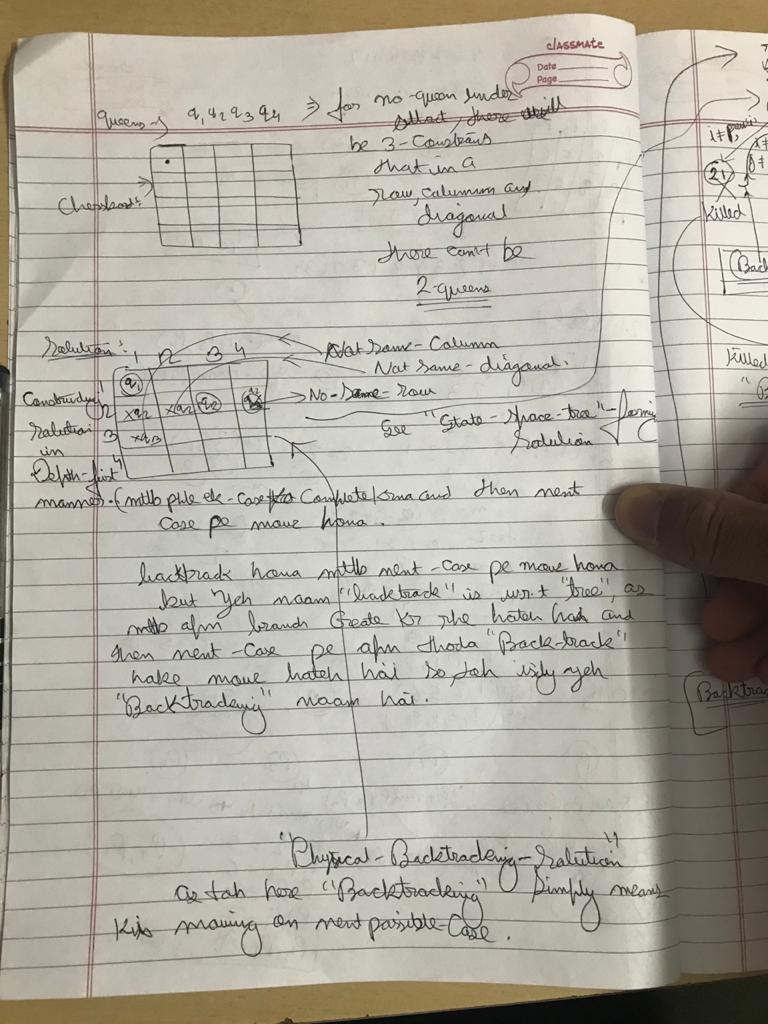 classmate
Date
Page
queens → q1 q2 q3 q4 ⇒ for no-queen under
attact, there will
be 3-Constrains
that in a
row, calumm and
diagonal
there can't be
2-queens
Chessboard:
Solution: 1 2 3 4
Not same-Column
Not same-diagonal.
No-same-row
q1
xq2 xq2 q2
xq3
1
2
3
4
Constructing
Solution
in
Depth-first
manner. (mtlb phle ek-case Complete krna and then next
Case pe move hona.
See "State-space-tree"-
Solution
backtrack hona mtlb next-Case pe move hona
but yeh naam "backtrack" is w.r.t "tree", as
mtlb apn branch Create kr rhe hoteh hai and
then next-Case pe apn thoda "Back-track"
hoke move hoteh hai so, toh isly yeh
"Backtracking" naam hai.
"Physical-Backtracking-Solution"
as toh here "Backtracking" simply means
moving on next possible-Case.
i≠
21
killed
Back
killed
Backtrac